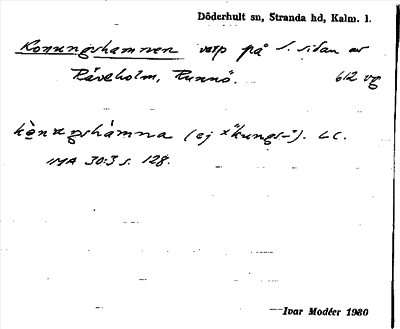 Döderhult sn, Stranda hd, Kalm. l.
Konungshamnen varp på S. sidan av
Rävelholm, Runnö. 612 vg
kònungshàmna (ej x"kungs-"). LC.
NMA 30:3 s. 128.
Ivar Modéer 1930